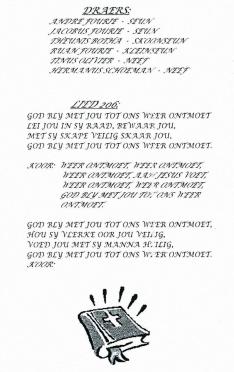 DRAERS:
ANDRE FOURIE - SEUN
JACOBUS FOURIE - SEUN
THEUNIS BOTHA - SKOONSEUN
RUAN FOURIE - KLEINSEUN
TINUS OLIVIER - NEEF
HERMANUS SCHOEMAN - NEEF
LIED 206:
GOD BLY MET JOU TOT ONS WEER ONTMOET
LEI JOU IN SY RAAD, BEWAAR JOU,
MET SY SKAPE VEILIG SKAAR JOU,
GOD BLY MET JOU TOT ONS WEER ONTMOET.
KOOR: WEER ONTMOET, WEER ONTMOET,
WEER ONTMOET, AAN JESUS VOET,
WEER ONTMOET, WEER ONTMOET,
GOD BLY MET JOU TOT, ONS WEER
ONTMOET.
GOD BLY MET JOU TOT ONS WEER ONTMOET,
HOU SY VLERKE OOR JOU VEILIG,
VOED JOU MET SY MANNA HEILIG,
GOD BLY MET JOU TOT ONS WEER ONTMOET.
KOOR: